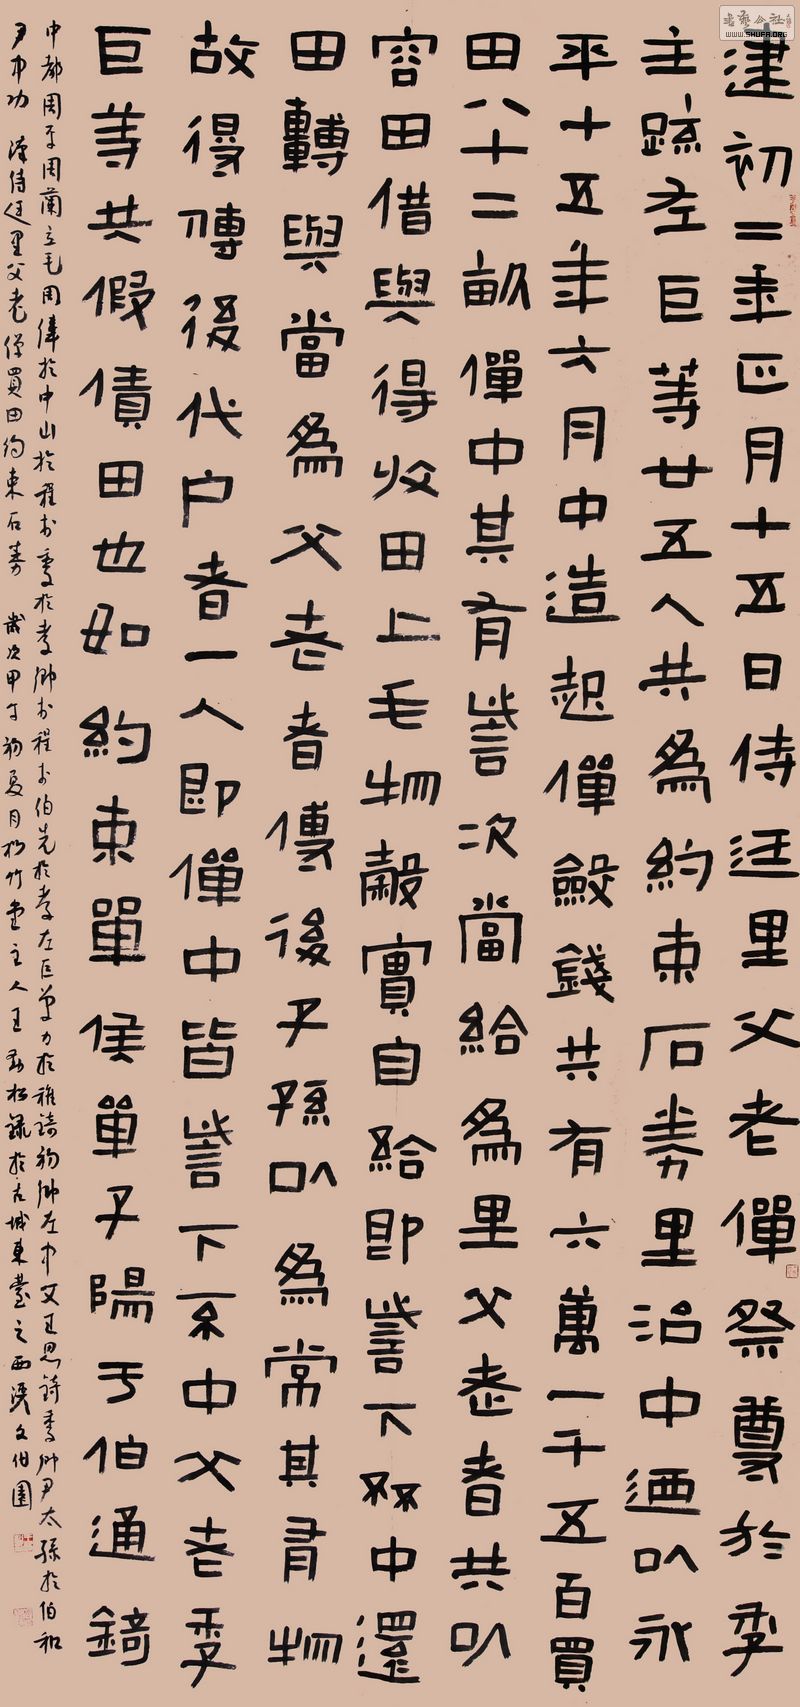 建初二年正月十五日侍廷里父老僤祭尊於季
主疏左巨等廿五人共為約束石券里治中迺以永
平十五年六月中造起僤斂錢共有六萬一千五百買
田八十二畝僤中其有訾次當給為里父老者共以
容田借與得收田上毛物穀實自給即訾下不中還
田轉與當為父老者傳後子孫以為常其有物
故得傳後代戶者一人即僤中皆訾下不中父老季
巨等共假債田也如約束單侯單子陽于伯通錡
中都周平周蘭毛周偉於中山於程於季於孝卿於程於伯先於孝左巨單力於稚錡初卿左中文王思錡季卿尹太孫於伯和
尹中功 漢侍廷里父老僤買田約束石券 歲次甲午初夏月松竹堂主人王松錄於古城東臺之西溪文伯園
书艺公社
WWW.SHUFA.ORG